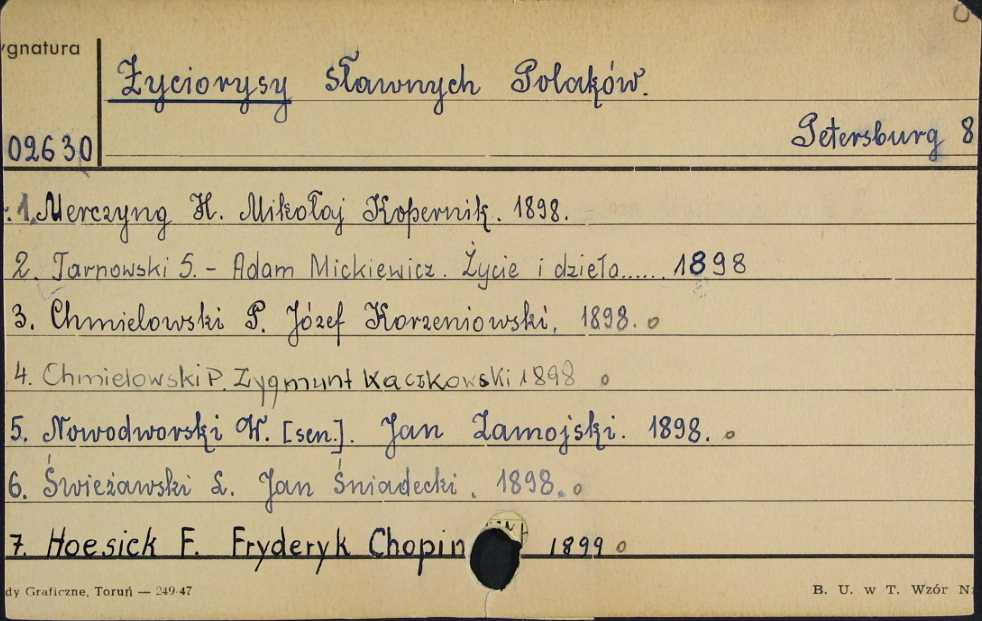 ygnatura
Życiorysy sławnych Polaków.
Petersburg 8
02630
1. Merczyng H. Mikołaj Kopernik. 1898.
2. Tarnowski S. - Adam Mickiewicz. Życie i dzieła...... 1898
3. Chmielowski P. Józef Korzeniowski, 1898. o
4. Chmielowski P. Zygmunt Kaczkowski 1898 o
5. Nowodworski W. [sen.]. Jan Zamojski. 1898. o
6. Świeżawski L. Jan Śniadecki. 1898. o
7. Hoesick F. Fryderyk Chopin 1899 o
dy Graficzne, Toruń — 249-47
B. U. w T. Wzór N